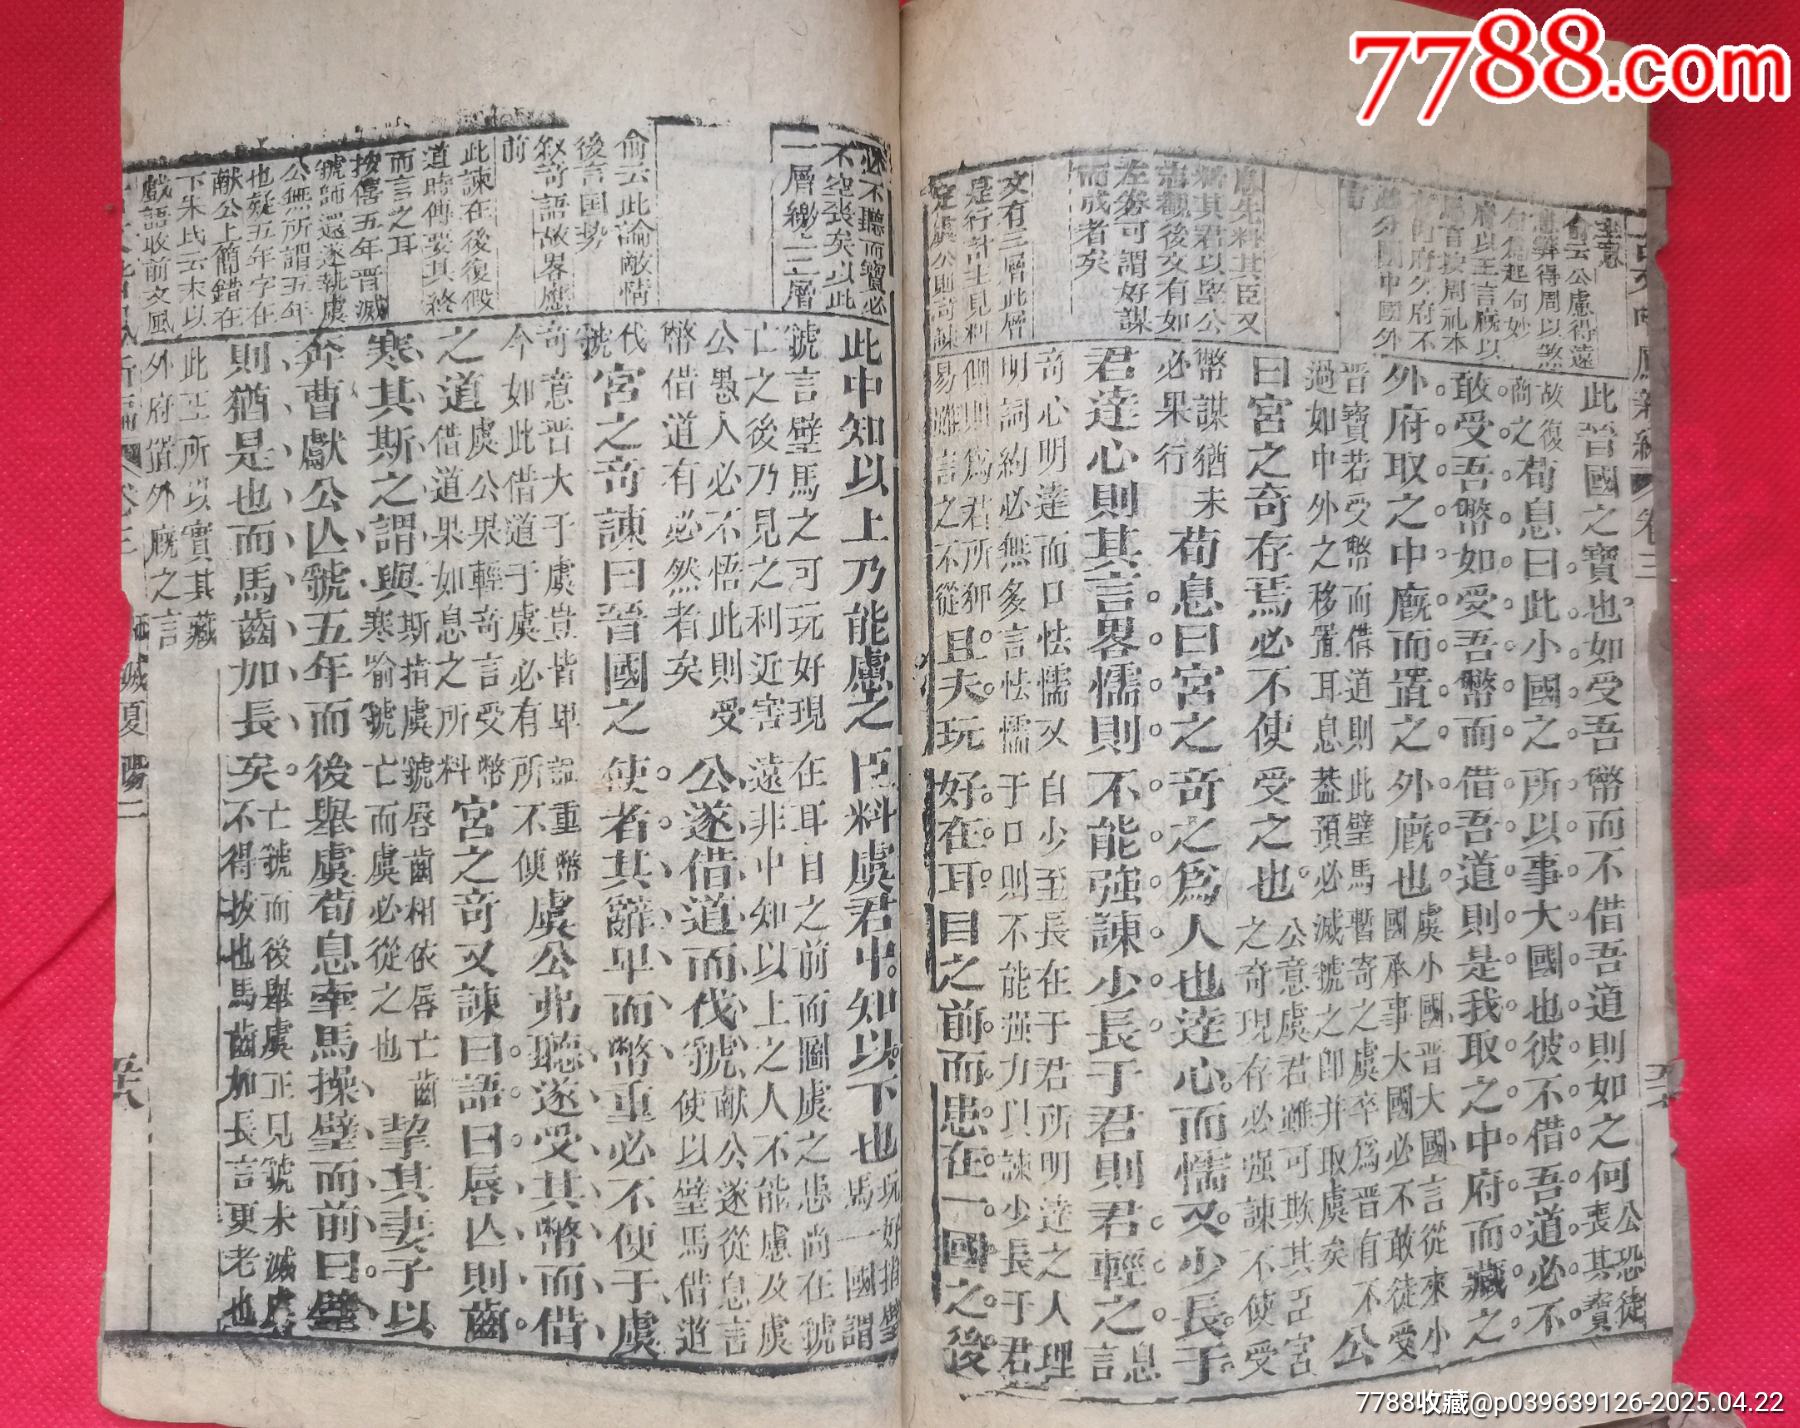 主意
俞云公慮得遠
息弊得周以煞
句爲起句妙
府以王言廐以
馬言按周礼本
有內府外府不
必分國中國外
也
虞先料其臣又
料其君以堅公
志觀後文有如
左券可謂好謀
而成者矣
文有三層此層
是行計主見料
定虞公則奇諫
此晉國之寶也如受吾幣而不借吾道則如之何公恐徒喪其寶
故復商之荀息曰此小國之所以事大國也彼不借吾道必不
敢受吾幣如受吾幣而借吾道則是我取之中府而藏之
外府取之中廐而置之外廐也虞小國晉大國言從來小國承事大國必不敢徒受
晉寶若受幣而借道則此璧馬暫寄之虞卒爲晉有不過如中外之移置耳息葢預必滅虢之卽并取虞矣公
曰宮之奇存焉必不使受之也公意虞君雖可欺其亞宮之奇現存必强諫不使受
幣謀猶未必果行荀息曰宮之奇之爲人也達心而懦又少長于
君達心則其言畧懦則不能強諫少長于君則君輕之息言
奇心明達而口怯懦又自少至長在于君所明達之人理明詞約必無多言怯懦于口則不能强力以諫少長于君
側則爲君所狎易雖言之不從且夫玩好在耳目之前而患在一國之後
必不聽而寶必
不空喪矣以此
一層繳上三層
俞云此論敵情
後言国势
叙奇語故畧應
前
此諫在後復假
道時傳要其終
而言之耳
按僖五年晋滅
虢師還遂執虞
公無所謂五年
也疑五年字在
献公上簡錯在
下朱氏云末以
戲語收前文風
此中知以上乃能慮之臣料虞君中知以下也玩好指璧馬一國謂
虢言璧馬之可玩好現在耳目之前而圖虞之患尚在虢亡之後乃見之利近害遠非中知以上之人不能慮及虞
公愚人必不悟此則受幣借道有必然者矣公遂借道而伐虢献公遂從息言使以璧馬借道
伐虢宮之奇諫曰晉國之使者其辭卑而幣重必不便于虞
奇意晋大于虞豈皆卑詞重幣今如此借道于虞必有所不便虞公弗聽遂受其幣而借
之道虞公果輕奇言受幣借道果如息之所料宮之奇又諫曰語曰唇亾則齒
寒其斯之謂與斯指虞虢唇齒相依唇亡齒寒喻虢亡而虞必從之也挈其妻子以
奔曹獻公亾虢五年而後舉虞荀息牽馬操璧而前曰璧
則猶是也而馬齒加長矣亡虢而後舉虞正見虢未滅虞不得拔也馬齒加長言更老也
此正所以實其藏外府置外廐之言
卷三
7788.com
7788收藏@p039639126-2025.04.22